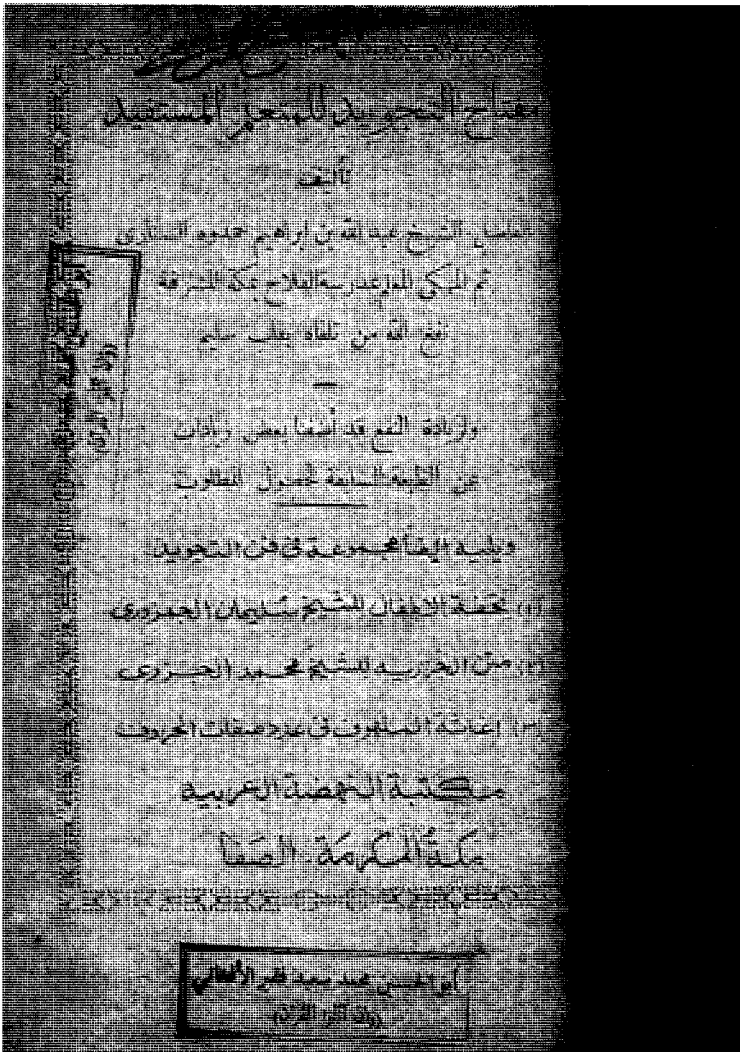 مفتاح التجويد للمتعلم المستفيد
تأليف
الشيخ عبدالله بن ابراهيم حمدوه السنارى
ثم المكى المعلم بمدرسة الفلاح بمكة المشرفة
نفع الله من تلقاه بقلب سليم
ولزيادة النفع قد أضفنا بعض زيادات
عن الطبعة السابقة لحصول المطلوب
ويليه ايضا مجموعة فى فن التجويد
(١) تحفة الاطفال للشيخ سليمان الجمزورى
(٢) متن الجزريه للشيخ محمد الجزرى
(٣) إغاثة الملهوف فى عدد صفات الحروف
مكتبة النهضة العربيه
مكة المكرمة - الصفا
أبو الحسن محمد سعيد فقير الأفغاني